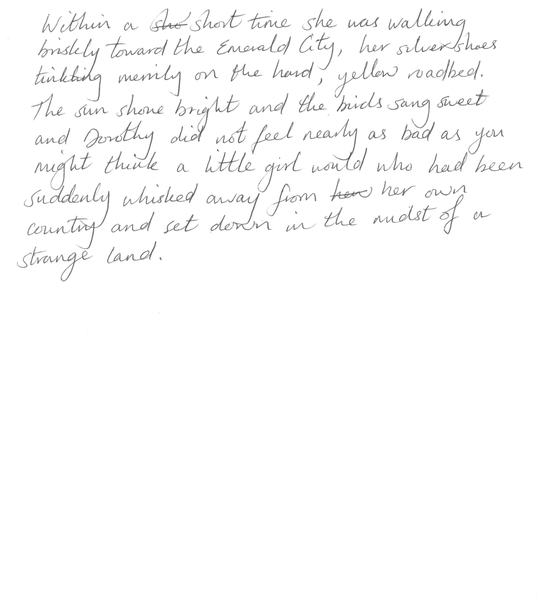 Within a sho short time she was walking
briskly toward the Emerald City, her silver shoes
tinkling merrily on the hard, yellow roadbed.
The sun shone bright and the birds sang sweet
and Dorothy did not feel nearly as bad as you
might think a little girl would who had been
suddenly whisked away from her her own
country and set down in the midst of a
strange land.